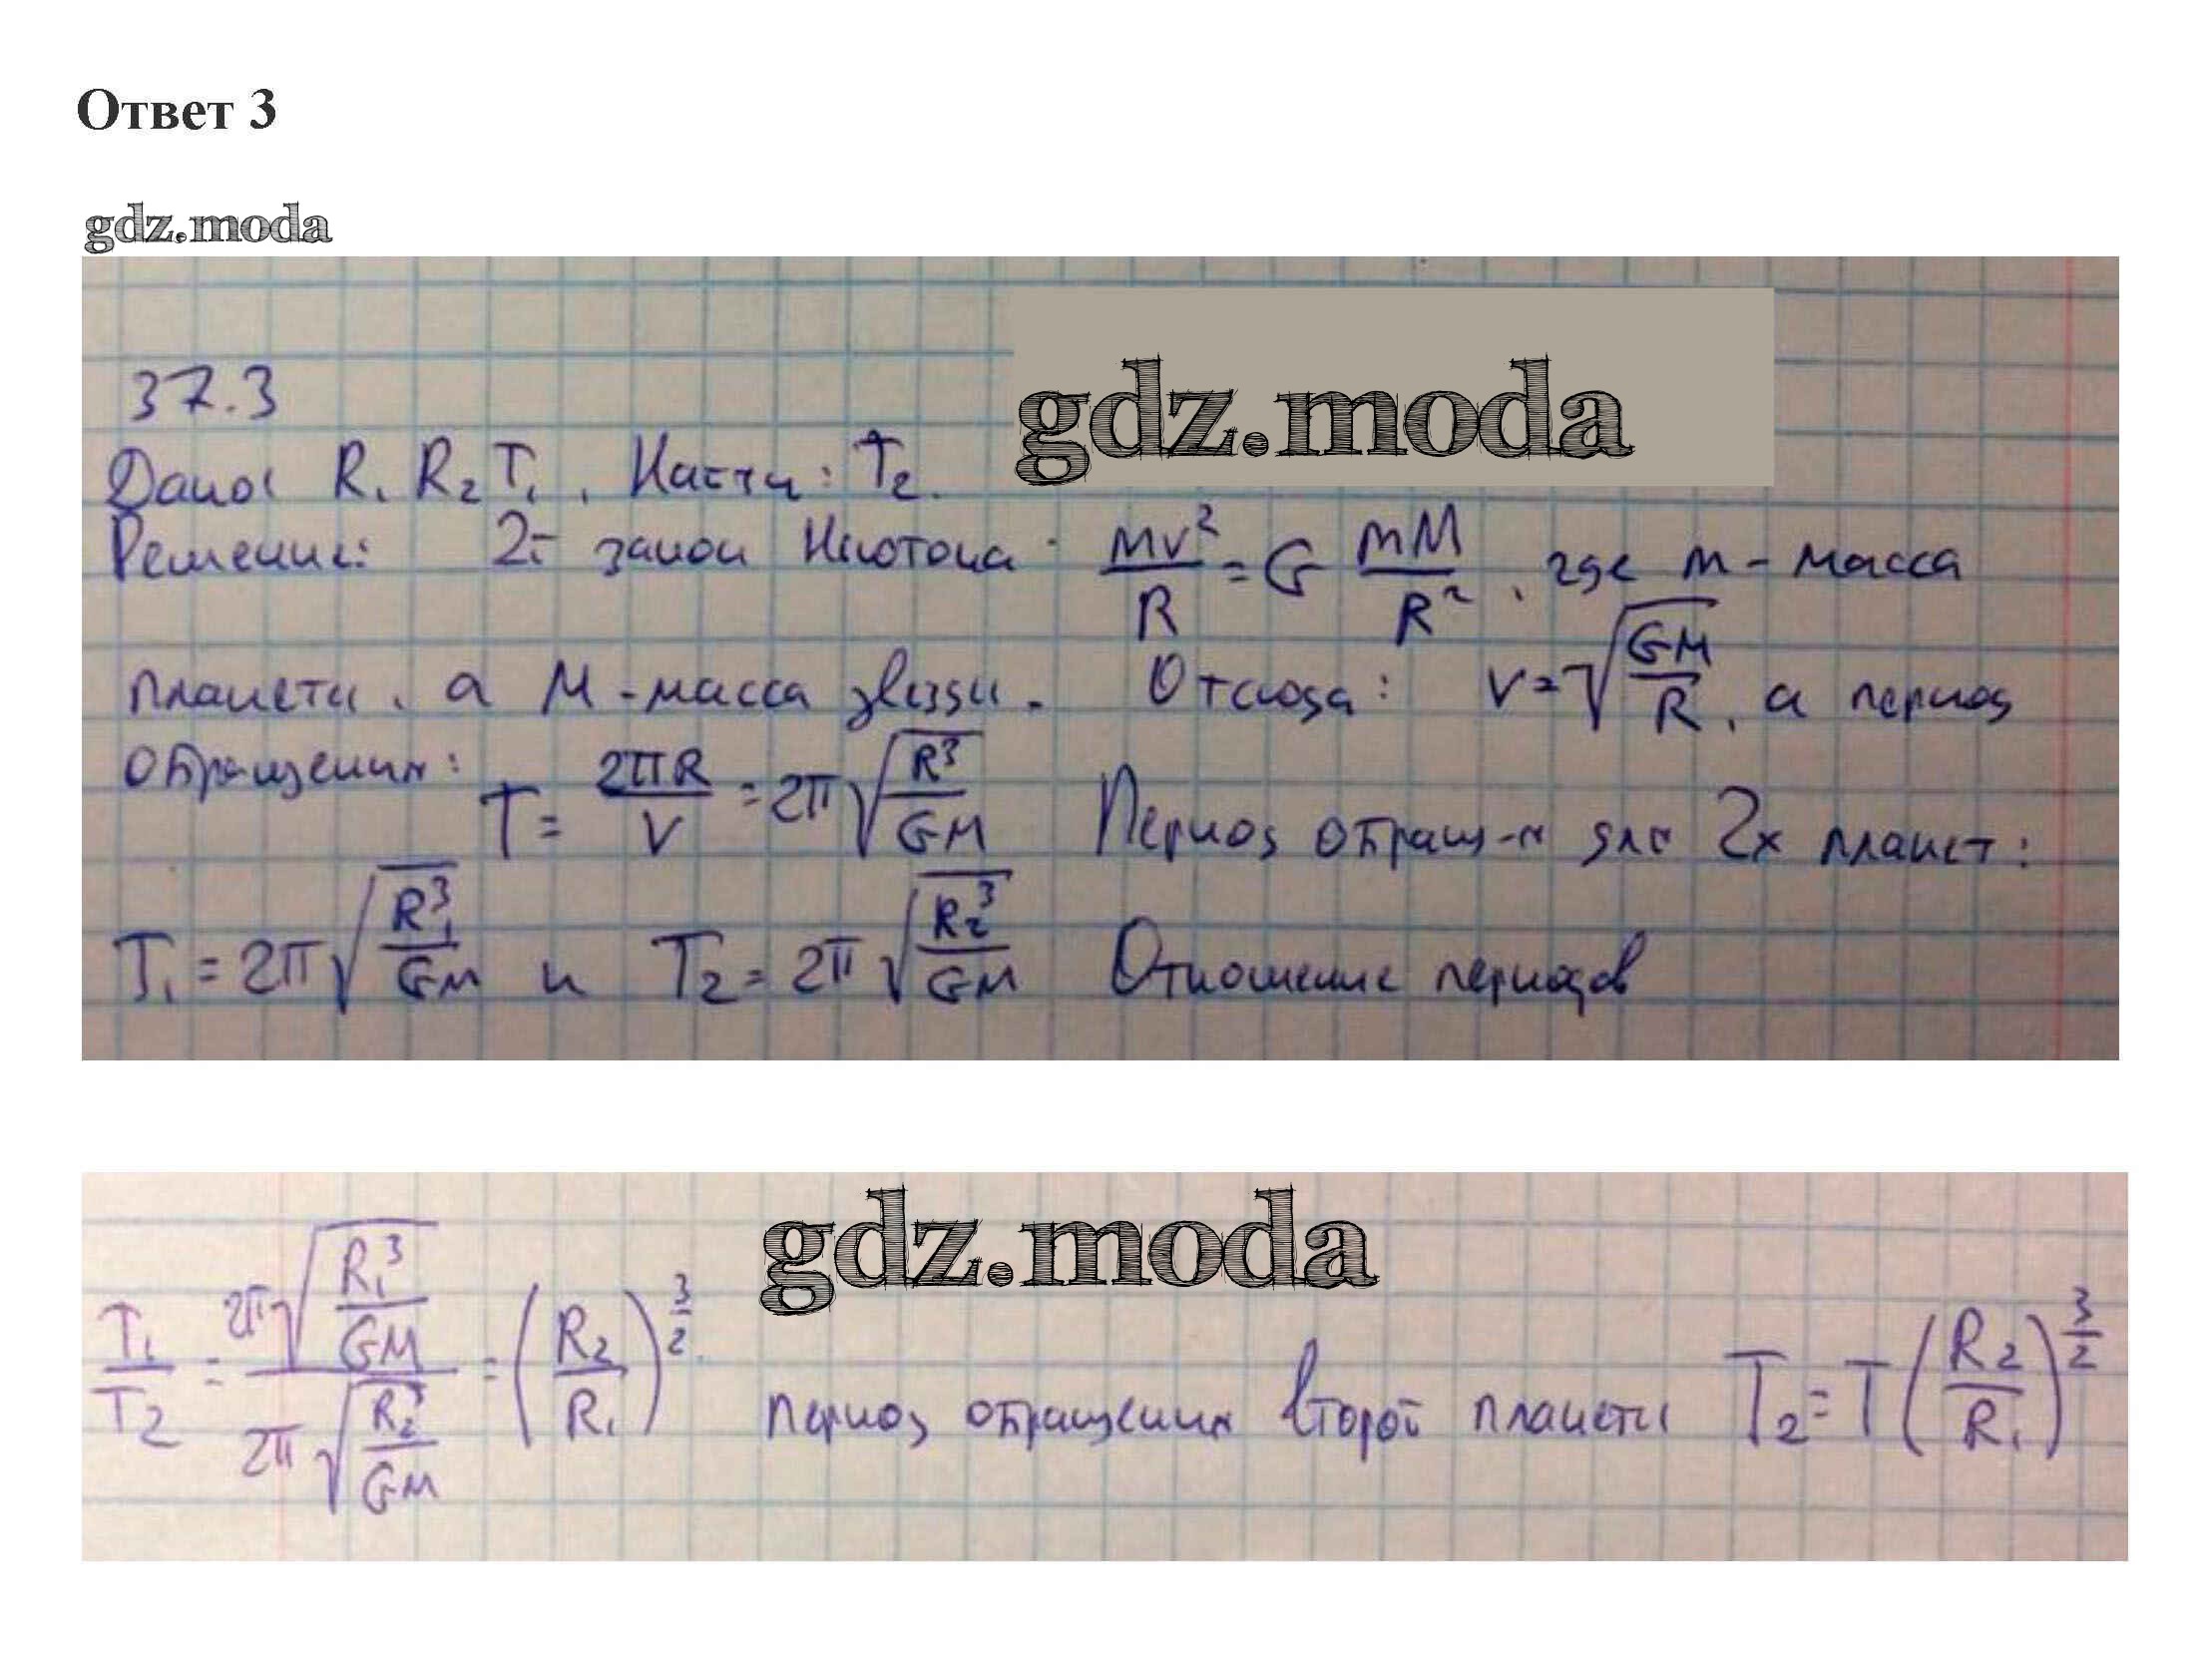 Ответ 3
gdz.moda
gdz.moda
37.3
Дано: R₁ R₂ T₁. Найти: T₂.
Решение: 2й закон Ньютона: mv²/R = G mM/R², где m - масса
планеты, а M - масса звезды. Отсюда: v = √(GM/R), а период
обращения: T = 2πR/v = 2π√(R³/GM) Период обращ-я для 2х планет:
T₁ = 2π√(R₁³/GM) и T₂ = 2π√(R₂³/GM) Отношение периодов
gdz.moda
T₁/T₂ = 2π√(R₁³/GM) / 2π√(R₂³/GM) = (R₂/R₁)^(3/2). период обращения второй планеты T₂ = T(R₂/R₁)^(3/2)